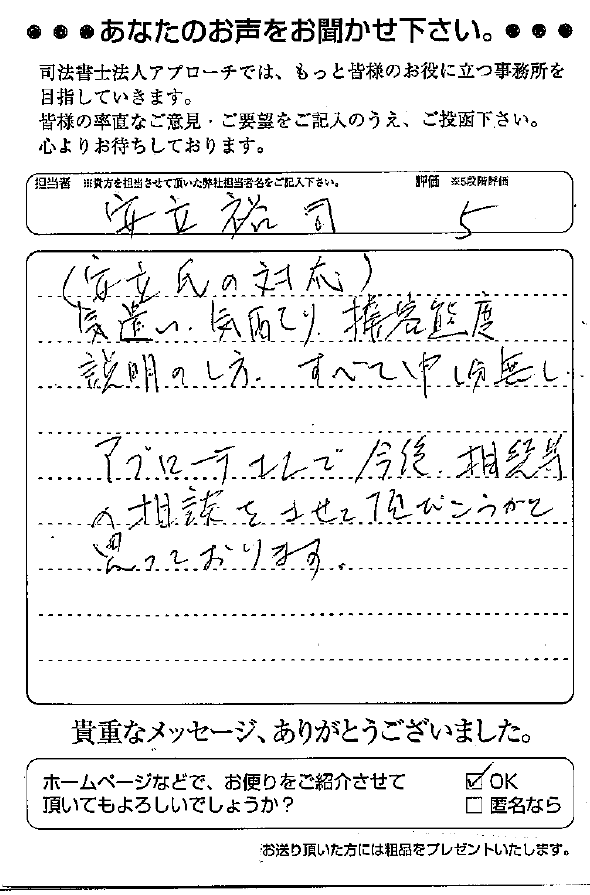 ●●●あなたのお声をお聞かせ下さい。●●●
司法書士法人アプローチでは、もっと皆様のお役に立つ事務所を
目指していきます。
皆様の率直なご意見・ご要望をご記入のうえ、ご投函下さい。
心よりお待ちしております。
担当者 ※貴方を担当させて頂いた弊社担当者名をご記入下さい。 評価 ※5段階評価
安立裕司 5
(安立氏の対応)
気遣い、気配り、接客態度
説明のし方、すべて申し分無し
アプローチさんで今後、相続等
の相談をさせて頂
思っております。
貴重なメッセージ、ありがとうございました。
ホームページなどで、お便りをご紹介させて
頂いてもよろしいでしょうか?
☑ OK
□ 匿名なら
お送り頂いた方には粗品をプレゼントいたします。